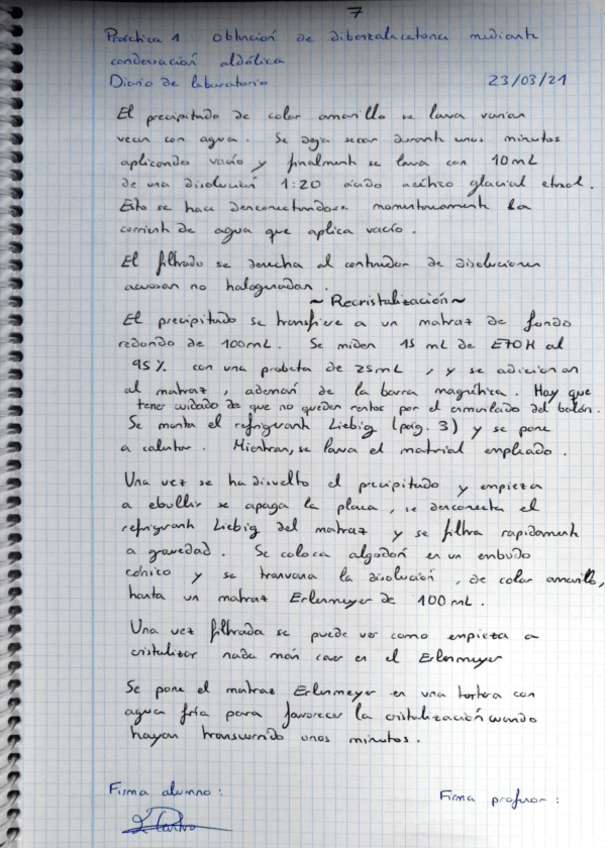 7
Práctica 1: Obtención de dibenzalacetona mediante
condensación aldólica
Diario de laboratorio 23/03/21
El precipitado de color amarillo se lava varias
veces con agua. Se deja secar durante unos minutos
aplicando vacío y finalmente se lava con 10 mL
de una disolución 1:20 ácido acético glacial etanol.
Esto se hace desconectándose momentáneamente la
corriente de agua que aplica vacío.
El filtrado se desecha al contenedor de disoluciones
acuosas no halogenadas.
~ Recristalización ~
El precipitado se transfiere a un matraz de fondo
redondo de 100mL. Se miden 15 mL de ETOH al
95% con una probeta de 25mL, y se adicionan
al matraz, además de la barra magnética. Hay que
tener cuidado de que no queden restos por el esmerilado del balón.
Se monta el refrigerante Liebig (pág. 3) y se pone
a calentar. Mientras, se lava el material empleado.
Una vez se ha disuelto el precipitado y empieza
a ebullir se apaga la placa, se desconecta el
refrigerante Liebig del matraz y se filtra rápidamente
a gravedad. Se coloca algodón en un embudo
cónico y se transvasa la disolución, de color amarillo,
hasta un matraz Erlenmeyer de 100 mL.
Una vez filtrada se puede ver como empieza a
cristalizar nada más caer en el Erlenmeyer
Se pone el matraz Erlenmeyer en una tortera con
agua fría para favorecer la cristalización cuando
hayan transcurrido unos minutos.
Firma alumno: Firma profesor: